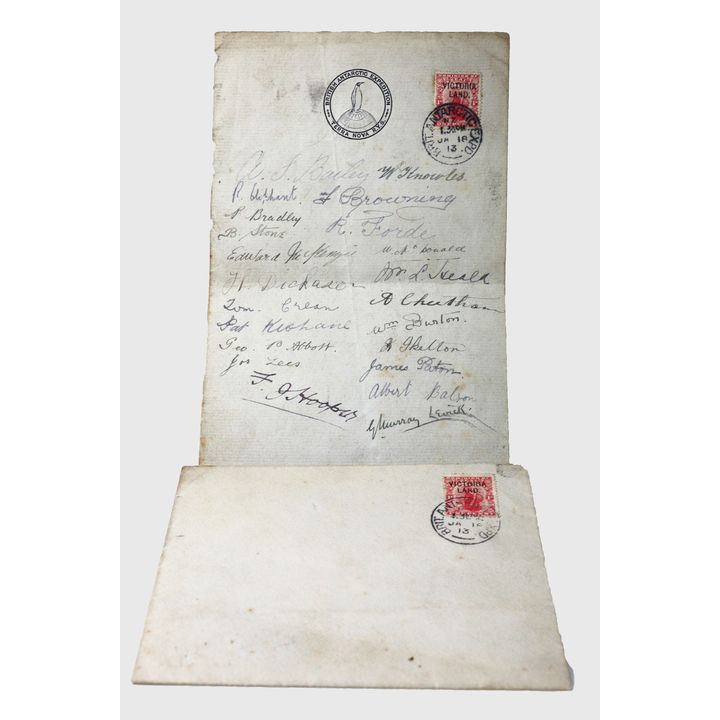 BRITISH ANTARCTIC EXPEDITION
TERRA NOVA R.Y.S.
VICTORIA
LAND.
BRIT. ANTARCTIC EXPD
JA 18
13
A. S. Bailey W Knowles
R. Oliphant. F Browning
P Bradley
B. Stone R. Forde
Edward McKenzie W. McDonald
H. Dickason Wm L. Heald
Tom. Crean A Cheetham
Pat Keohane Wm Burton.
Geo P. Abbott. J Skelton
Jos Lees James Paton
F. J Hooper Albert Balson
G Murray Levick.
VICTORIA
LAND.
BRIT. ANTARCTIC EXPD
JA 18
13